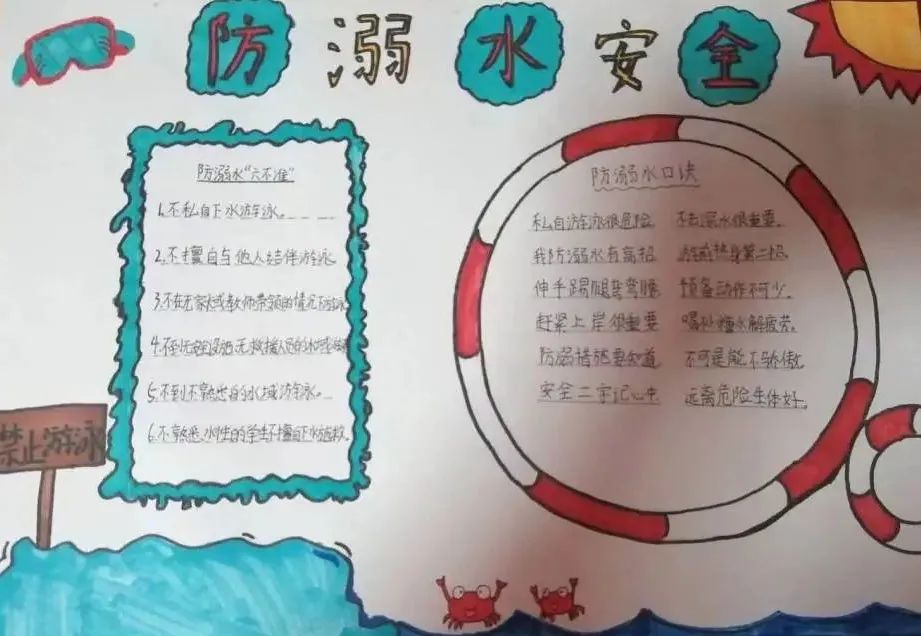 防溺水安全
防溺水"六不准"
1.不私自下水游泳。
2.不擅自与他人结伴游泳
3.不在无家长或教师带领的情况下游泳
4.不到无安全设施、无救援人员的水域游泳
5.不到不熟悉的水域游泳。
6.不熟悉水性的学生不擅自下水施救。
禁止游泳
防溺水口诀
私自游泳很危险 不去深水很重要。
我防溺水有高招 游前热身第一招
伸手踢腿弯弯腰 预备动作不可少。
赶紧上岸很重要 喝补糖水解疲劳。
防溺措施要知道 不可逞能不骄傲
安全二字记心中 远离危险生体好。